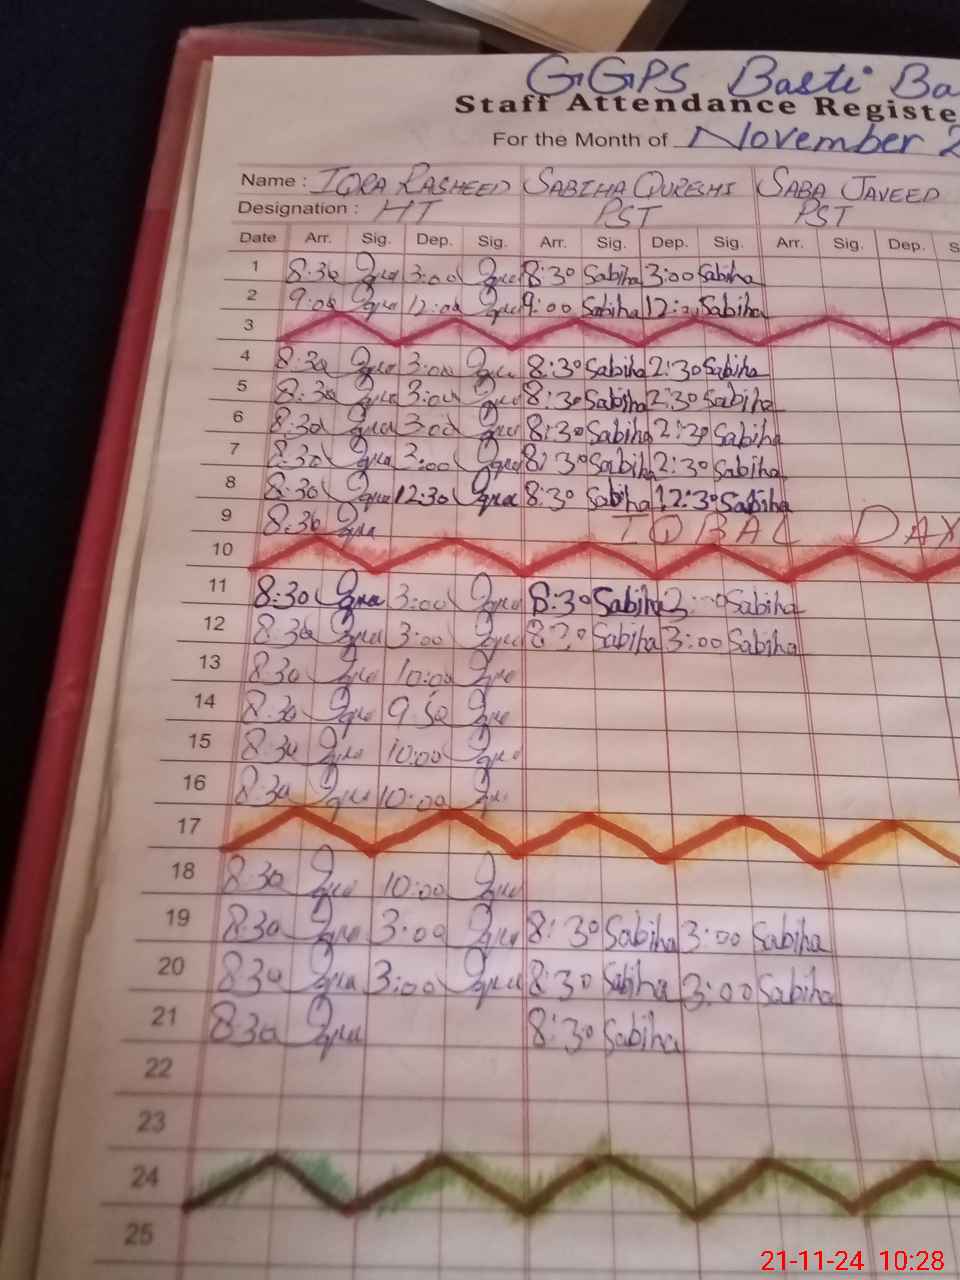 GGPS Basti Ba
Staff Attendance Registe
For the Month of November 2
Name : IQRA RASHEED SABIHA QURESHI SABA JAVEED
Designation : HT PST PST
Date Arr. Sig. Dep. Sig. Arr. Sig. Dep. Sig. Arr. Sig. Dep. S
1 8:30 Iqra 3:00 Iqra 8:30 Sabiha 3:00 Sabiha
2 9:00 Iqra 12:00 Iqra 9:00 Sabiha 12:00 Sabiha
3
4 8:30 Iqra 3:00 Iqra 8:30 Sabiha 2:30 Sabiha
5 8:30 Iqra 3:00 Iqra 8:30 Sabiha 2:30 Sabiha
6 8:30 Iqra 3:00 Iqra 8:30 Sabiha 2:30 Sabiha
7 8:30 Iqra 3:00 Iqra 8:30 Sabiha 2:30 Sabiha
8 8:30 Iqra 12:30 Iqra 8:30 Sabiha 12:30 Sabiha
9 8:30 Iqra IQBAL DAY
10
11 8:30 Iqra 3:00 Iqra 8:30 Sabiha 3:00 Sabiha
12 8:30 Iqra 3:00 Iqra 8:30 Sabiha 3:00 Sabiha
13 8:30 Iqra 10:00 Iqra
14 8:30 Iqra 9:50 Iqra
15 8:30 Iqra 10:00 Iqra
16 8:30 Iqra 10:00 Iqra
17
18 8:30 Iqra 10:00 Iqra
19 8:30 Iqra 3:00 Iqra 8:30 Sabiha 3:00 Sabiha
20 8:30 Iqra 3:00 Iqra 8:30 Sabiha 3:00 Sabiha
21 8:30 Iqra 8:30 Sabiha
22
23
24
25
21-11-24 10:28